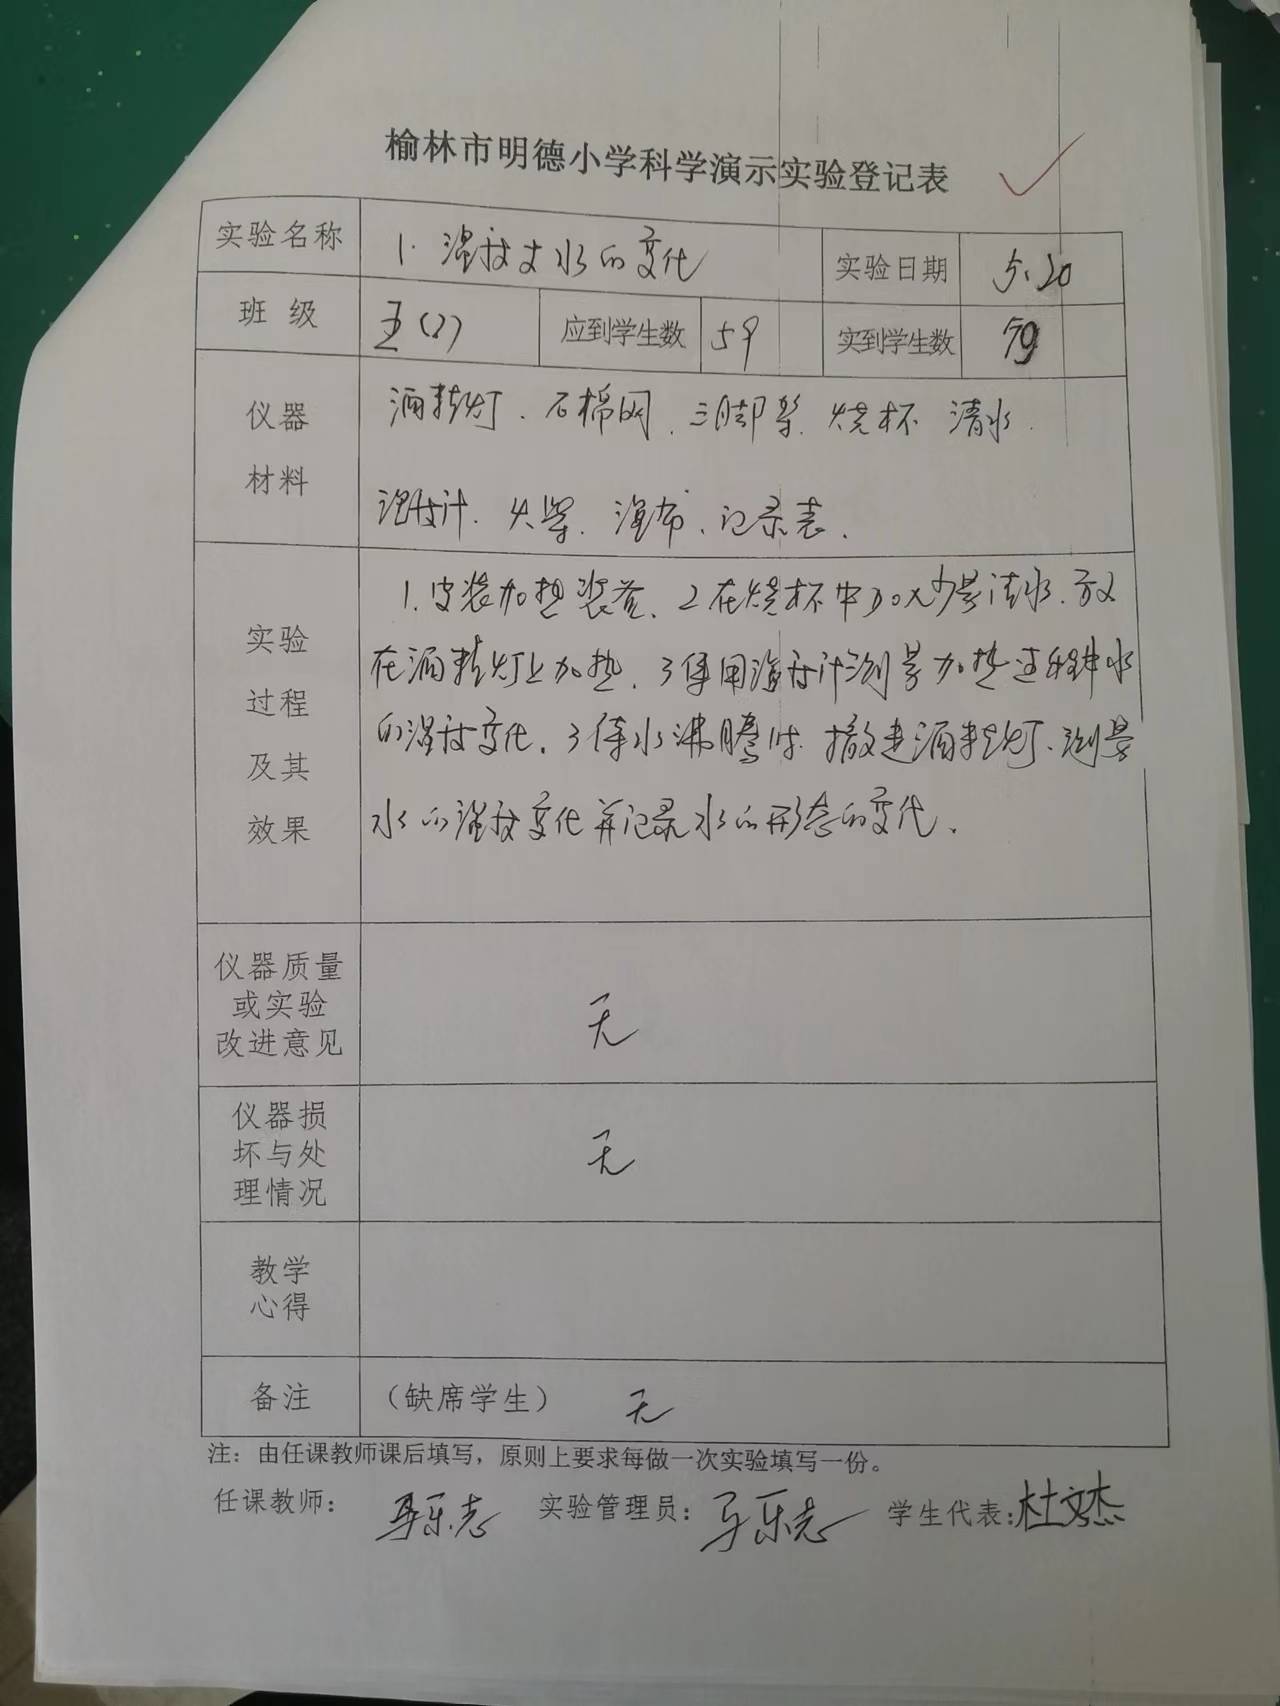 榆林市明德小学科学演示实验登记表
实验名称 1. 温度与水的变化 实验日期 5.20
班级 五(2) 应到学生数 59 实到学生数 59
仪器材料 酒精灯、石棉网、三脚架、烧杯 清水、
温度计、火柴、湿布、记录表、
实验过程及其效果 1.安装加热装置、2在烧杯中加入少量清水、放
在酒精灯上加热、3使用温度计测量加热过程中水
的温度变化、3待水沸腾时、撤走酒精灯、测量
水的温度变化并记录水的形态的变化、
仪器质量或实验改进意见 无
仪器损坏与处理情况 无
教学心得
备注 (缺席学生) 无
注：由任课教师课后填写，原则上要求每做一次实验填写一份。
任课教师： 马乐志 实验管理员： 马乐志 学生代表：杜文杰